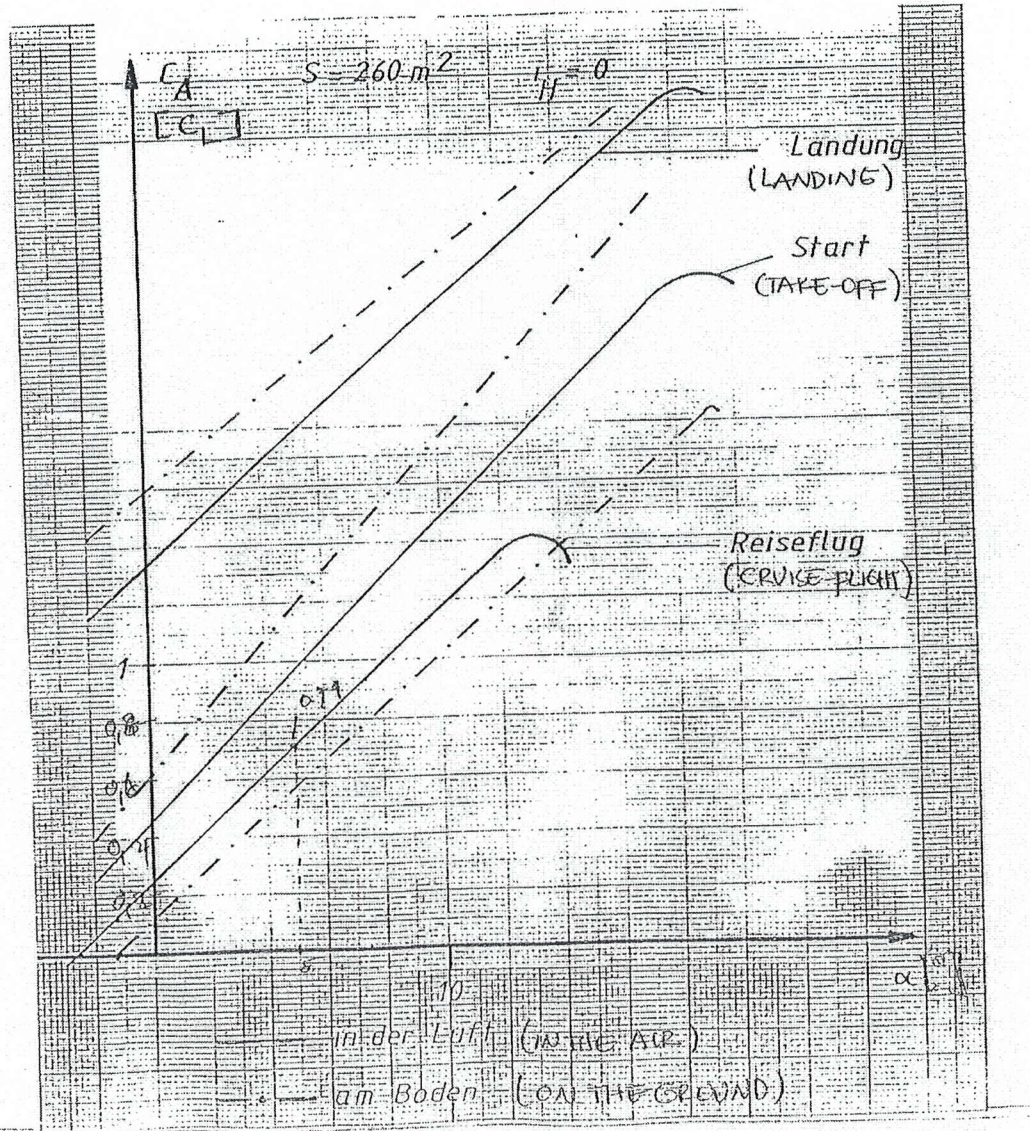 C_A S = 260 m² i_H = 0
[C_L]
Landung
(LANDING)
Start
(TAKE-OFF)
Reiseflug
(CRUISE-FLIGHT)
1
0,8
0,6
0,4
0,2
5
10
α
in der Luft (IN THE AIR)
am Boden (ON THE GROUND)